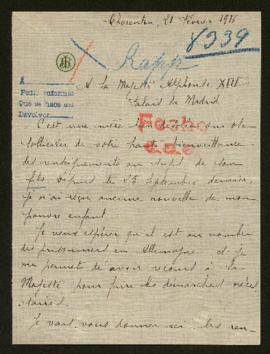 Charenton, 21 Février 1916
8339
Rapp
A
Pedir informes
Que se haga aux
Devolver
A Sa Majesté Alphonse XIII
Palais de Madrid
C'est une mère bien désolée qui ose
solliciter de votre haute bienveillance
des renseignements au sujet de son
fils disparu le 25 Septembre dernier
je n'ai reçu aucune nouvelle de mon
pauvre enfant
Je veux espérer qu'il est au nombre
des prisonniers en Allemagne et je
me permet de avoir recours à Sa
Majesté pour faire les démarches néces
saires.
Je vais vous donner ici les ren